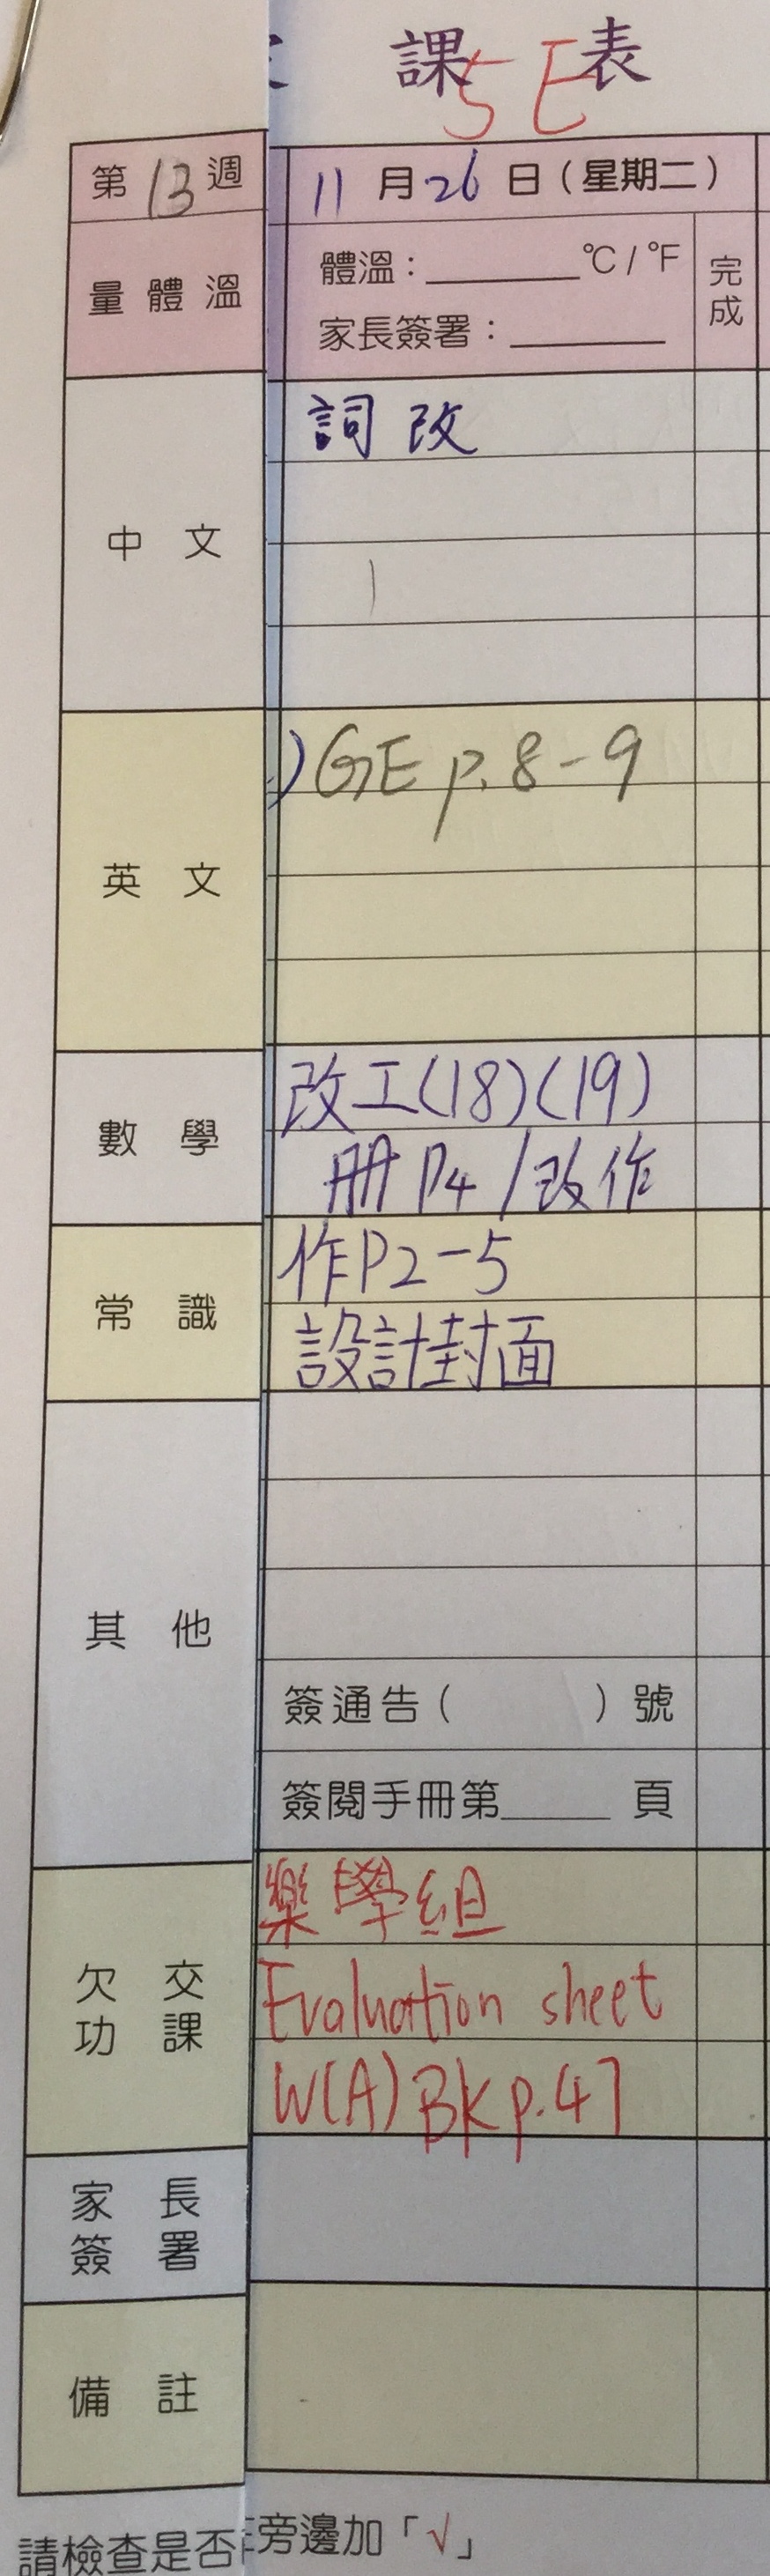 課 表
5E
第13週
11月26日(星期二)
量體溫
體溫:______°C/°F
完成
家長簽署:______
中文
詞改
英文
)GE p.8-9
數學
改工(18)(19)
冊P4/改作
常識
作P2-5
設計封面
其他
簽通告( )號
簽閱手冊第____頁
欠交功課
樂學組
Evaluation sheet
W(A) BK p.47
家長簽署
備註
請檢查是否
旁邊加「√」